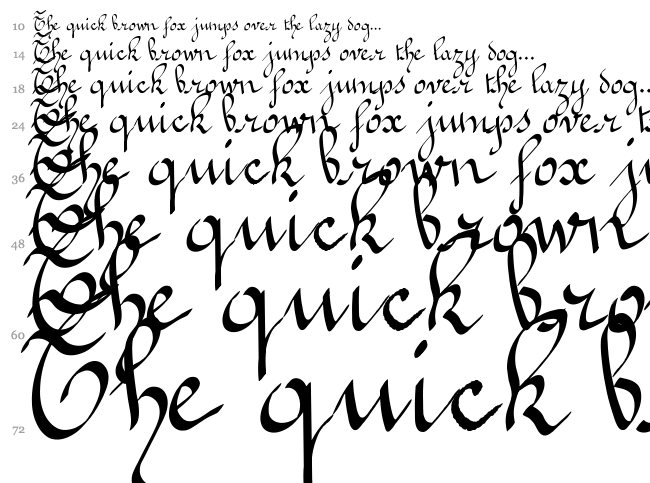 10 The quick brown fox jumps over the lazy dog...
14 The quick brown fox jumps over the lazy dog...
18 The quick brown fox jumps over the lazy dog..
24 The quick brown fox jumps over t
36 The quick brown fox j
48 The quick brown
60 The quick bro
72 The quick b